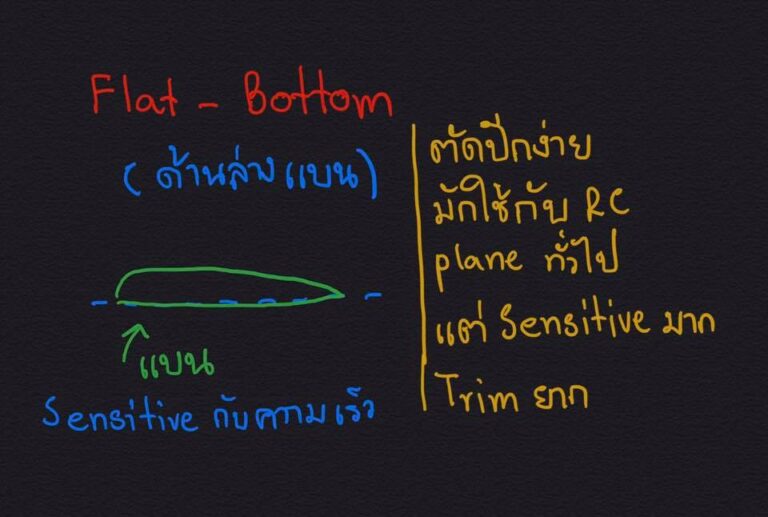 Flat - Bottom
(ด้านล่างแบน)
แบน
Sensitive กับความเร็ว
ตัดปีกง่าย
มักใช้กับ RC
plane ทั่วไป
แต่ Sensitive มาก
Trim ยาก